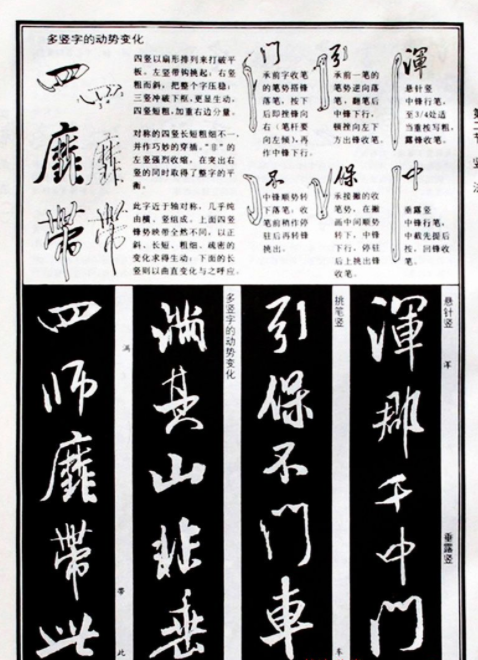 多竖字的动势变化
四
四竖以扇形排列来打破平
板，左竖带钩挑起；右竖
粗而斜，把整个字压稳；
三竖冲破下框，更显生动，
四竖短粗，加重右边分量。
靡
对称的四竖长短粗细不一，
并作巧妙的穿插。“非”的
左竖强烈收缩，在突出右
竖的同时取得了整字的平
衡。
带
此字近于轴对称，几乎纯
由横、竖组成。上面四竖
锋势映带全然不同，以正
斜、长短、粗细、疏密的
变化求得生动；下面的长
竖则以曲直变化与之呼应。
门
承前字收笔
的笔势搭锋
落笔，按下
后即挫锋向
右（笔杆要
向左倾），再
作中锋下行。
引
承前一笔的
笔势逆向落
笔，翻笔后
中锋下行，
顿挫向左下
方出锋收笔。
渾
悬针竖
中锋行笔，
至3/4处适
当重按写粗，
露锋收笔。
不
中锋顺势转
下落笔；收
笔前稍作停
驻后再转锋
挑出。
保
承接撇的收
笔势，在撇
画中间顺势
转下，中锋
下行，停驻
后上挑出锋
收笔。
中
垂露竖
中锋行笔，
中截先提后
按，回锋收
笔。
悬针竖
渾
郡
干
垂露竖
中
門
挑笔竖
引
保
不
門
車
多竖字的动势变化
满
其
山
非
垂
四
师
靡
帶
此